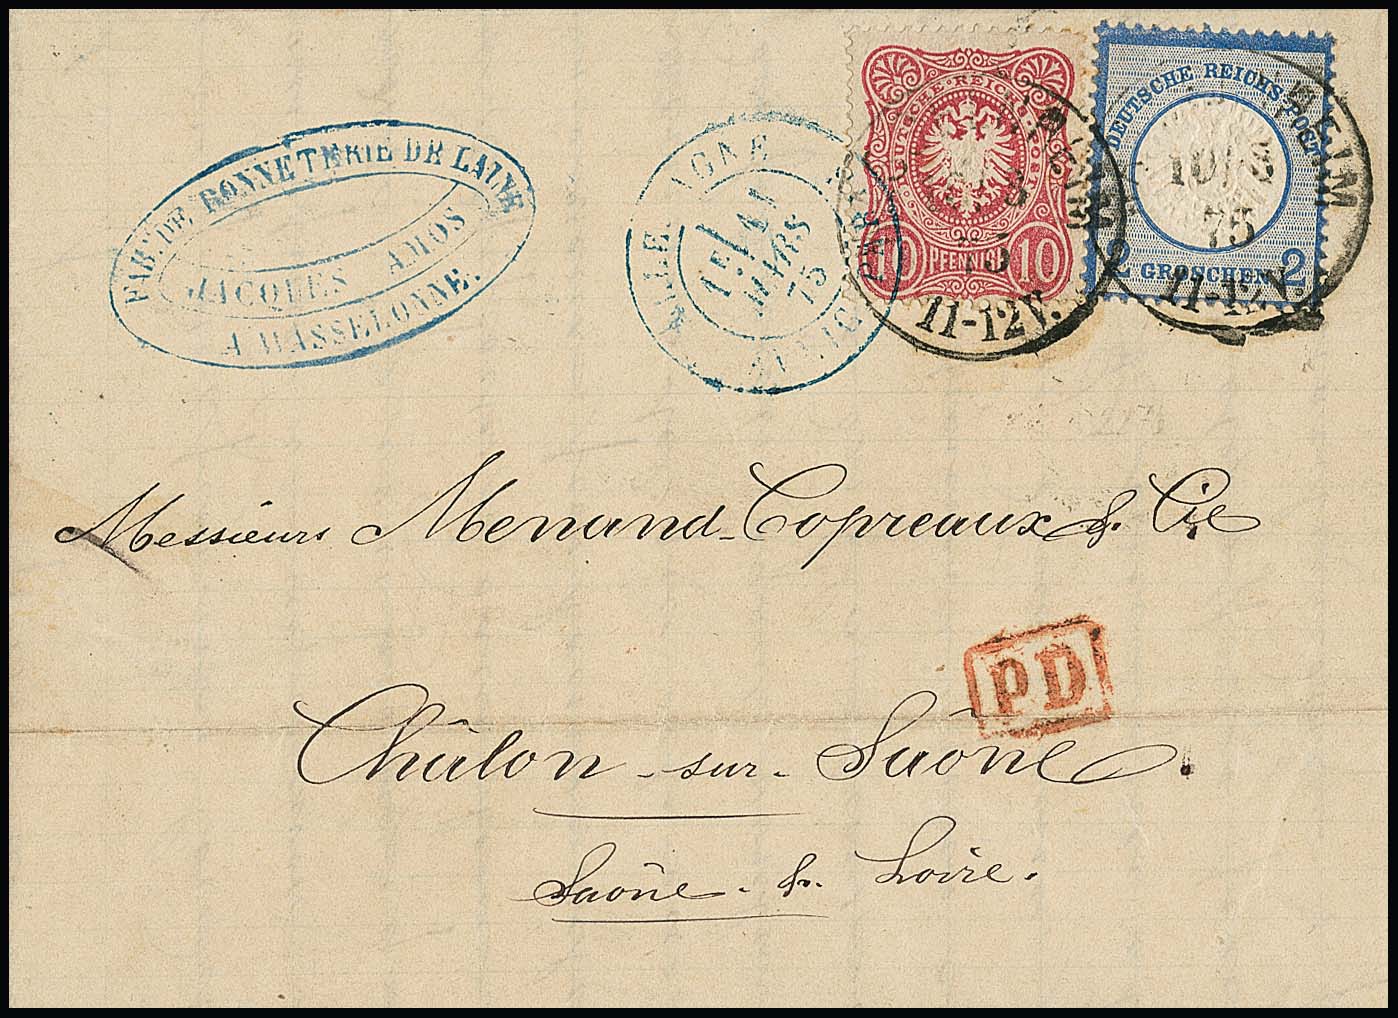 DEUTSCHE REICHS-POST
10 PFENNIGE 10
DEUTSCHE REICHS-POST
2 GROSCHEN 2
75
11-12V.
HEIM
10/3
75
11-12V.
FAB. DE BONNETERIE DE LAINE
JACQUES AMOS
A WASSELONNE.
11
MARS
75
Messieurs Menand-Copreaux & Cie
PD
Châlon-sur-Saône.
Saône-&-Loire.